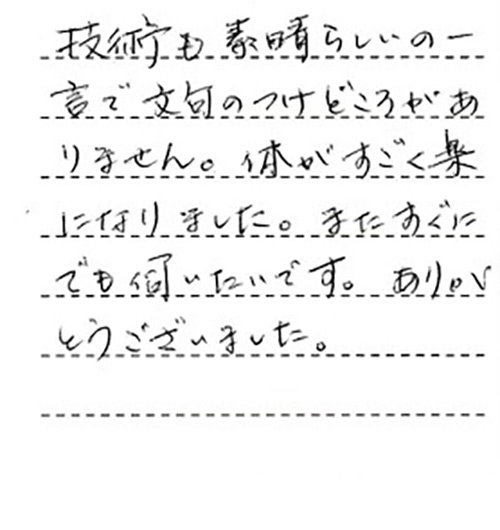 技術も素晴らしいの一
言で文句のつけどころがあ
りません。体がすごく楽
になりました。またすぐに
でも伺いたいです。ありが
とうございました。